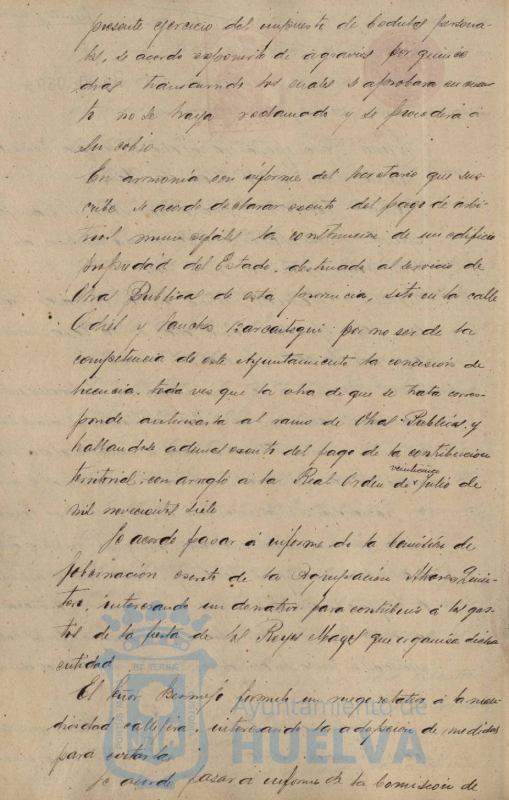 presente ejercicio del impuesto de cedulas persona-
les, se acordo exponerlo de agravios por quince
dias transcurrido los cuales se aprobara en cuan-
to no se haya reclamado y se procederá á
su cobro.
En armonía con informe del Secretario que sus-
cribe se acordo declarar exento del pago de arbi-
trios municipales la construccion de un edificio
propiedad del Estado, destinado al servicio de
Obras Publicas de esta provincia, sito en la calle
Odiel y Sancho Barcaiztegui por no ser de la
competencia de este Ayuntamiento la concesión de
licencia, toda vez que la obra de que se trata corres-
ponde autorizarla al ramo de Obras Publicas y
hallandose ademas exento del pago de la contribucion
veinticinco
territorial con arreglo á la Real Orden de Julio de
mil novecientos siete
Se acordo pasar á informe de la Comisión de
Gobernación escrito de la Agrupación Alvarez Quin-
tero, interesando un donativo para contribuir á los gas-
tos de la fiesta de los Reyes Magos que organisa dicha
entidad.
El Señor Bermejo formuló un ruego relativo á la men-
dicidad callejera, interesando la adopcion de medidas
para evitarla
Se acordo pasar á informe de la Comisión de
Ayuntamiento de
HUELVA